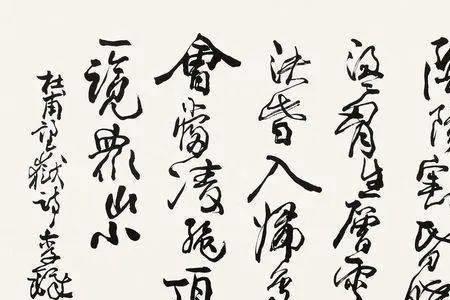 陰陽割昏曉
盪胷生層雲
決眥入歸鳥
會當凌絕頂
一覽眾山小
杜甫望嶽詩李鐸